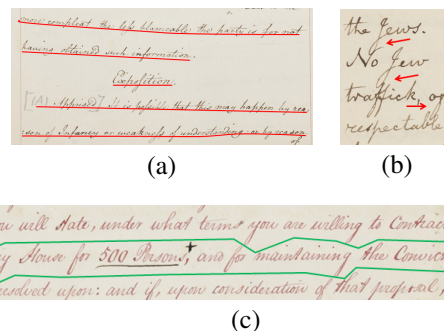 more compleat the less blameable the party is for not
having obtained such information.
Exposition.
[(A) Apprised] It is possible that this may happen by rea-
son of Infancy or weakness of understanding: or by reason
of
(a)
the Jews.
No Jew
traffick, or
respectable
(b)
you will State, under what terms you are willing to Contrac
y House for 500 Persons,+ and for maintaining the Convic
resolved upon: and if, upon consideration of that proposal,
(c)